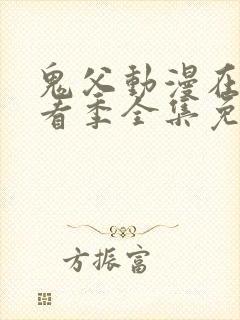 鬼父動漫在
看季全集免
方振富